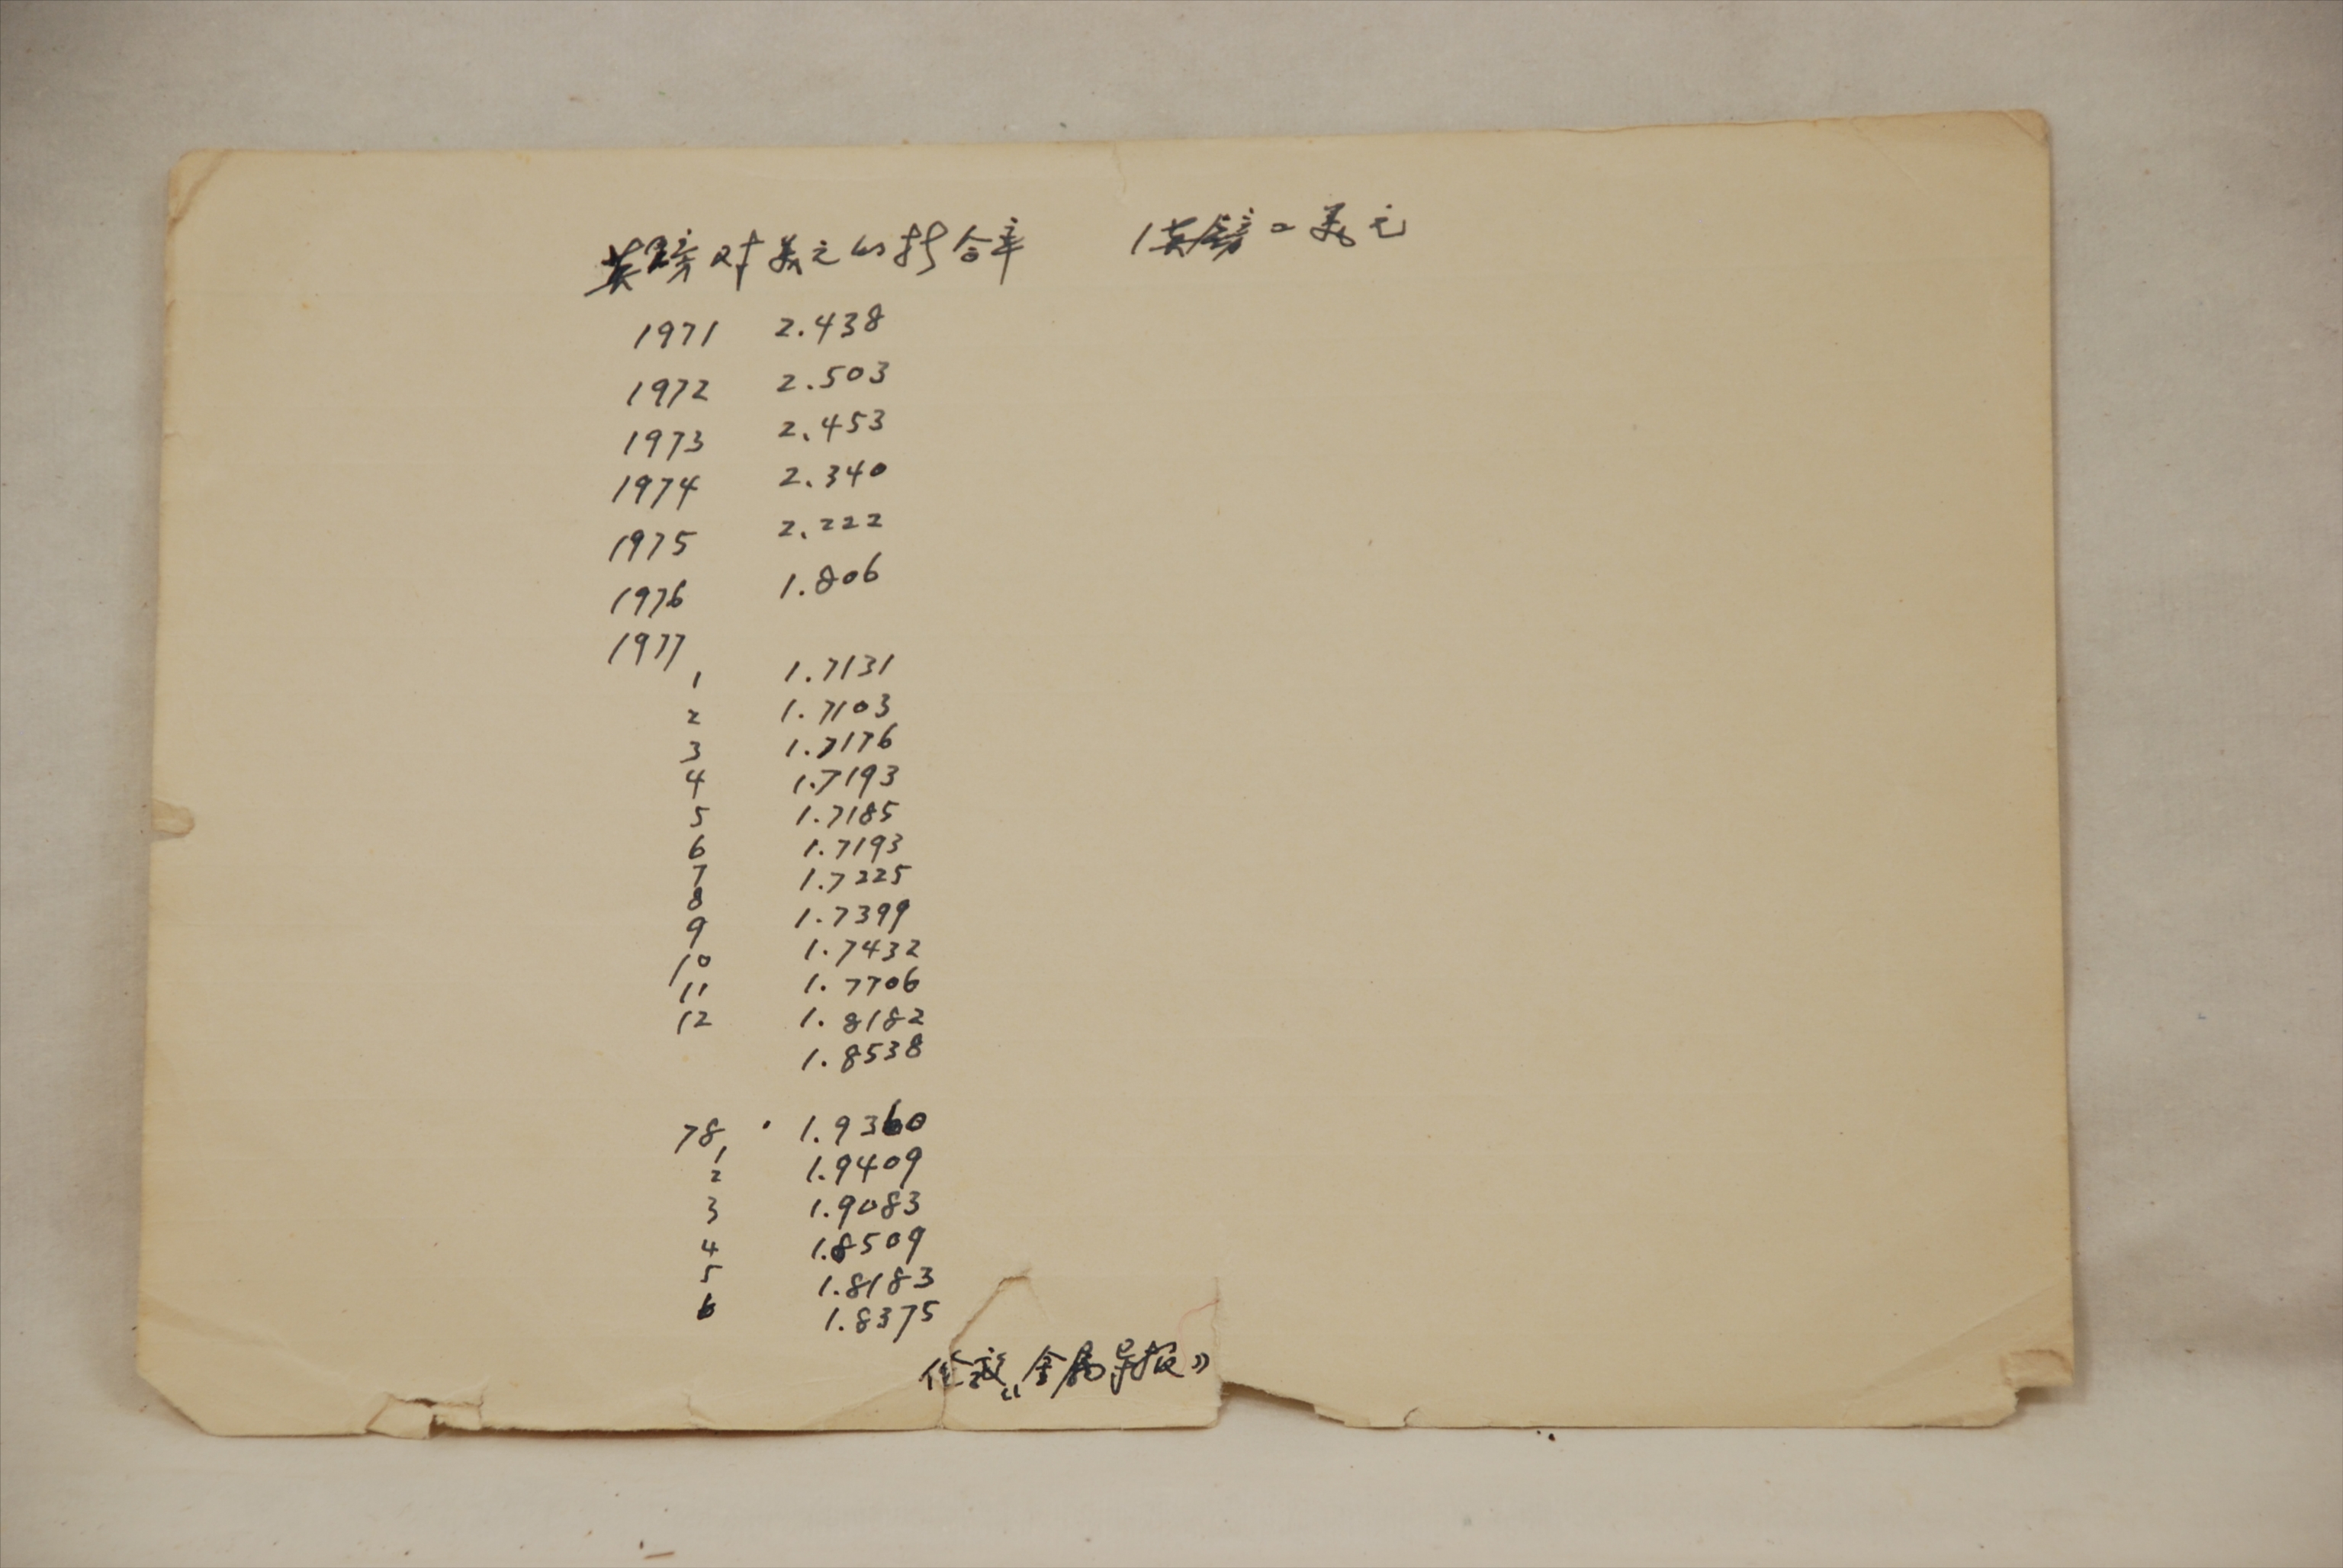 英镑对美元的折合率 1英镑=美元
1971 2.438
1972 2.503
1973 2.453
1974 2.340
1975 2.222
1976 1.806
1977
1 1.7131
2 1.7103
3 1.7176
4 1.7193
5 1.7185
6 1.7193
7 1.7225
8 1.7399
9 1.7432
10 1.7706
11 1.8182
12 1.8538
78.1 1.9360
2 1.9409
3 1.9083
4 1.8509
5 1.8183
6 1.8375
伦敦《金属导报》